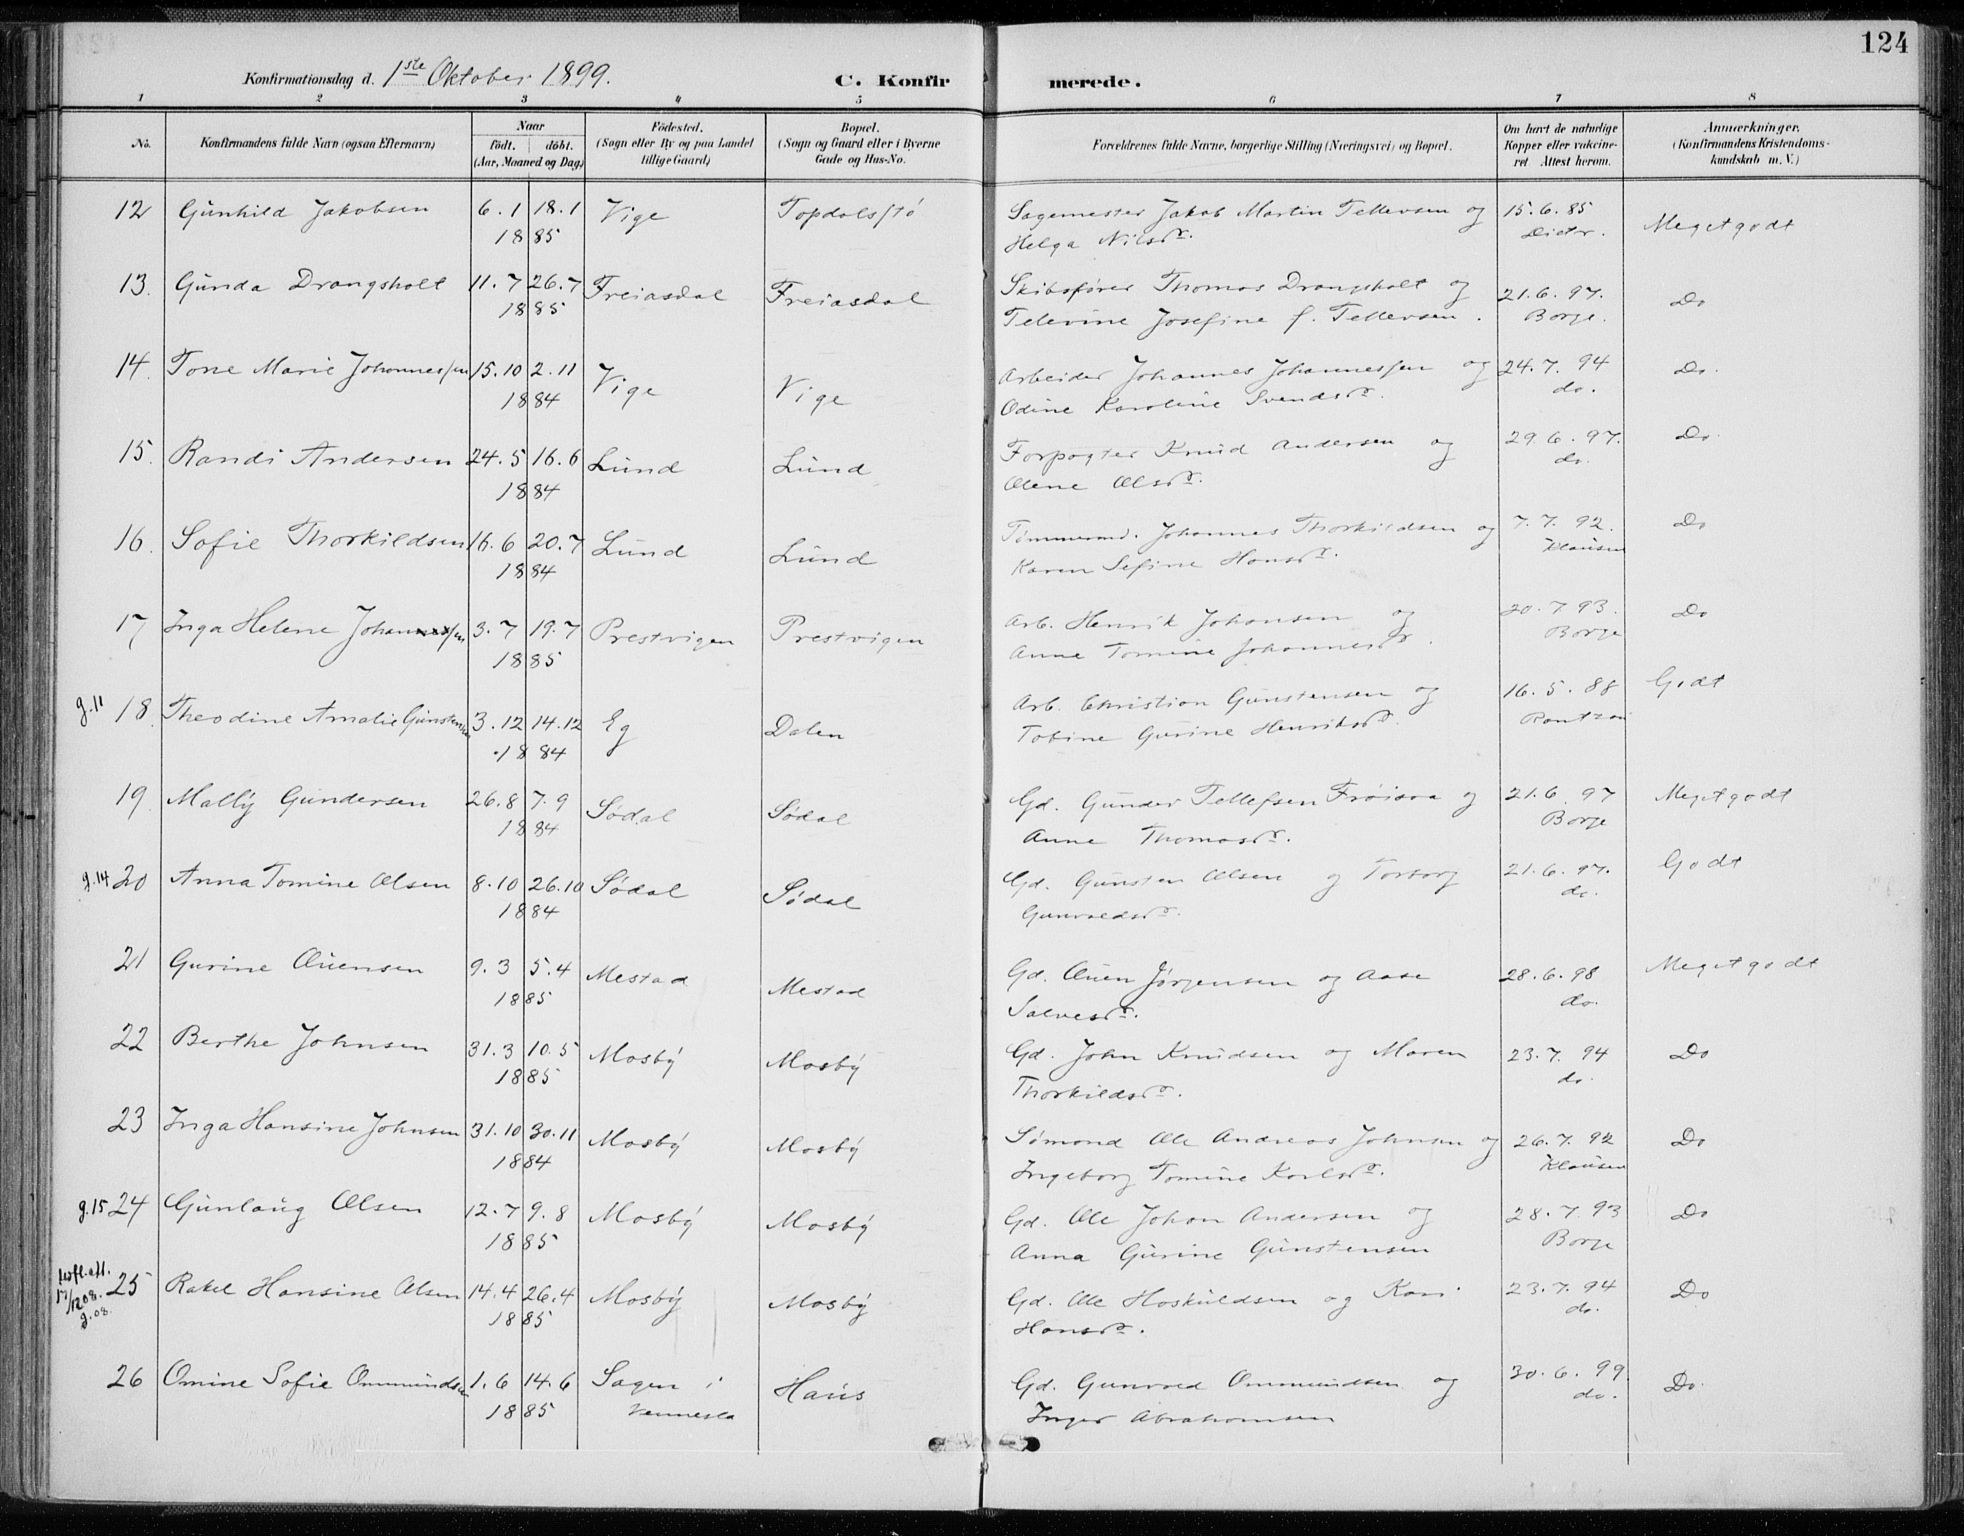 124
Konfirmationsdag d. 1ste Oktober 1899.
C. Konfirmerede.
1 2 3 4 5 6 7 8
No.
Konfirmandens fulde Navn (ogsaa Efternavn)
Naar
født. døbt.
(Aar, Maaned og Dag)
Fødested.
(Sogn eller By og paa Landet
tillige Gaard)
Bopæl.
(Sogn og Gaard eller i Byerne
Gade og Hus-No.
Forældrenes fulde Navne, borgerlige Stilling (Næringsvei) og Bopæl.
Om havt de naturlige
Kopper eller vakcine-
ret Attest herom.
Anmærkninger.
(Konfirmandens Kristendoms-
kundskab m. V.)
12 Gunhild Jakobsen 6.1 18.1 Vige Topdalsstø Sagemester Jakob Martin Tellevsen og 15.6.85 Meget godt
1885 Helga Nilsdr.
13. Gunda Drangsholt 11.7 26.7 Freiasdal Freiasdal Skibsfører Thomas Drangsholt og 21.6.97. Do
1885 Televine Josefine f. Tellevsen. Borge.
14. Tone Marie Johannessen 15.10 2.11 Vige Vige Arbeider Johannes Johannessen og 24.7.94 Do.
1884 Odine Karoline Svendsdr. do.
15. Randi Andersen 24.5 16.6 Lund Lund Forpagter Knud Andersen og 29.6.97. Do.
1884 Olene Olsdr. do.
16. Sofie Thorkildsen 16.6 20.7 Lund Lund Tømmermd. Johannes Thorkildsen og 7.7.92. Do
1884 Karen Sefine Hansdr. Klausen
17 Inga Helene 3.7 19.7 Prestvigen Prestvigen Arb. Henrik Johansen og 20.7.93. Do
1885 Anne Tomine Johannesdr. Borge
g.11 18. Theodine Amalie Gunstensen 3.12 14.12 Eg Dalen Arb. Christian Gunstensen og 16.5.88 Godt
1884 Tobine Gurine Henriksdr.
19. Mally Gundersen 26.8 7.9 Sødal Sødal Gd. Gunder Tellefsen Frøisaa og 21.6.97 Meget godt
1884 Anne Thomasdr. Borge
g.14 20 Anna Tomine Olsen 8.10 26.10 Sødal Sødal Gd. Gunsten Olsen og Torborg 21.6.97. Godt
1884 Gunvaldsdr. do.
21 Gurine Ouensen 9.3 5.4 Mestad Mestad Gd. Ouen Jørgensen og Aase 28.6.98 Meget godt
1885 Salvesdr. do.
22 Berthe Johnsen 31.3 10.5 Mosby Mosby Gd. John Knudsen og Maren 23.7.94 Do
1885 Thorkildsdr. do.
23 Inga Hansine Johnsen 31.10 30.11 Mosby Mosby Sømand Ole Andreas Johnsen og 26.7.92 Do
1884 Ingeborg Tomine Karlsdr. Klausen
g.15 24 Gunlaug Olsen 12.7 9.8 Mosby Mosby Gd. Ole Johan Andersen og 28.7.93 Do
1885 Anna Gurine Gunstensen Borge
25 Rakel Hansine Olsen 14.4 26.4 Mosby Mosby Gd. Ole Hoskuldsen og Kari 23.7.94 Do
g.08. 1885 Hansdr. do.
26 Omine Sofie Ommundsen 1.6 14.6 Sagen i Haus Gd. Gunvald Ommundsen og 30.6.99 Do.
1885 Vennesla Inger Abrahamsen do.